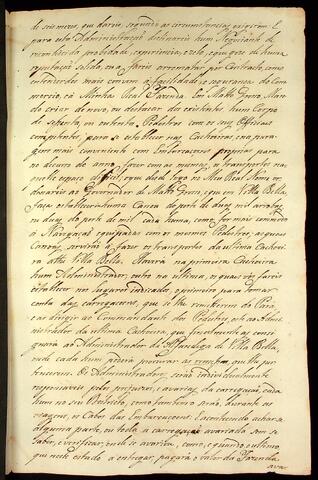 de seis mezes, que dariá, segundo as circunstancias exigirem. E
para esta Administração destinareis hum Negociante de
reconhecida probidade, experiencia, e zelo, e que goze de huma
reputação solida, ou a fareis arrematar por Contracto, como
entenderdes mais convem á facilidade, e segurança do Com-
mercio, e á Minha Real Fazenda. Em Matto Grosso Man-
do crear de novo, ou destacar dos existentes hum Corpo
de sessenta, ou outenta Pedestres com os seus Officiaes
competentes, para se estabelecer nas Cachoeiras, na para-
gem mais conveniente com Embarcaçoens proprias para
no decurso do anno fazer com as mesmas os transportes na-
quelle espaço difficil, e que desde logo no Meu Real Nome or-
denareis ao Governador de Matto Grosso, que em Villa Bella
faça estabelecer huma Canoa do porte de duas mil arrobas,
ou duas do porte de mil cada huma, como for mais commodo
á Navegação equipadas com os mesmos Pedestres, as quaes
Canoas servirão a fazer os transportes da ultima Cachoei-
ra athe Villa Bella. Haverá na primeira Cachoeira
hum Administrador, outro na ultima, os quaes vos fareis
estabelecer nos lugares indicados, o primeiro para tomar
conta das carregaçoens, que se lhe remetterem do Pará
e as dirigir ao Commandante dos Pedestres, e este ao Admi-
nistrador da ultima Cachoeira, que finalmente as consi-
gnará ao Administrador da Alfandega de Villa Bella,
onde cada hum poderá procurar as remessas, que lhe per-
tencerem. Os Administradores serão individualmente
responsaveis pelos prejuizos, e avarias da carregação, cada
hum no seu Destricto, como tambem o serão, durante as
viagens, os Cabos das Embarcaçoens. Encontrando-se achar
alguma parte, ou toda a carregação avariada sem se
saber, e verificar, onde se avariára, como, e quando, o ultimo
que neste estado a entregar, pagará o valor da Fazenda
ava-